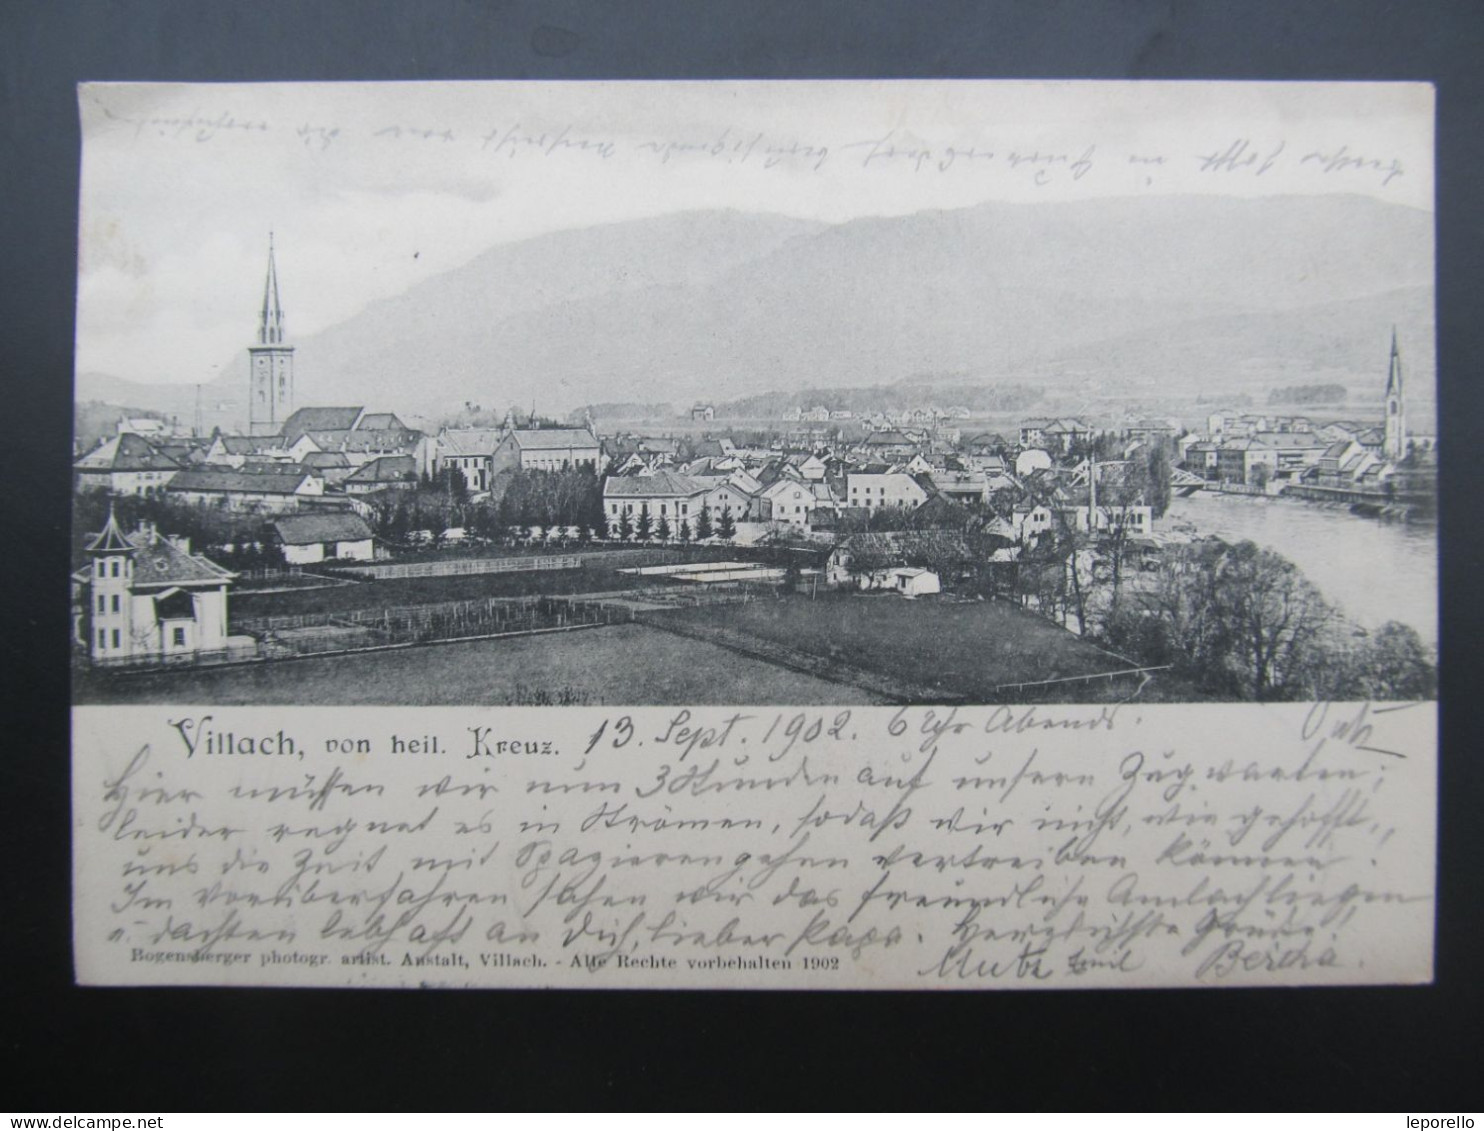 Villach, von heil. Kreuz. 13. Sept. 1902. 6 Uhr Abends.
Hier müssen wir nun 3 Stunden auf unsern Zug warten;
leider regnet es in Strömen, sodaß wir nicht, wie gehofft,
uns die Zeit mit Spazierengehen vertreiben können.
Im Vorüberfahren sahen wir das freundliche Amlach liegen
u. dachten lebhaft an Dich, lieber Papa. Herzlichste Grüße!
Bogensberger photogr. artist. Anstalt, Villach. - Alle Rechte vorbehalten 1902
Emil Bertha.
leporello